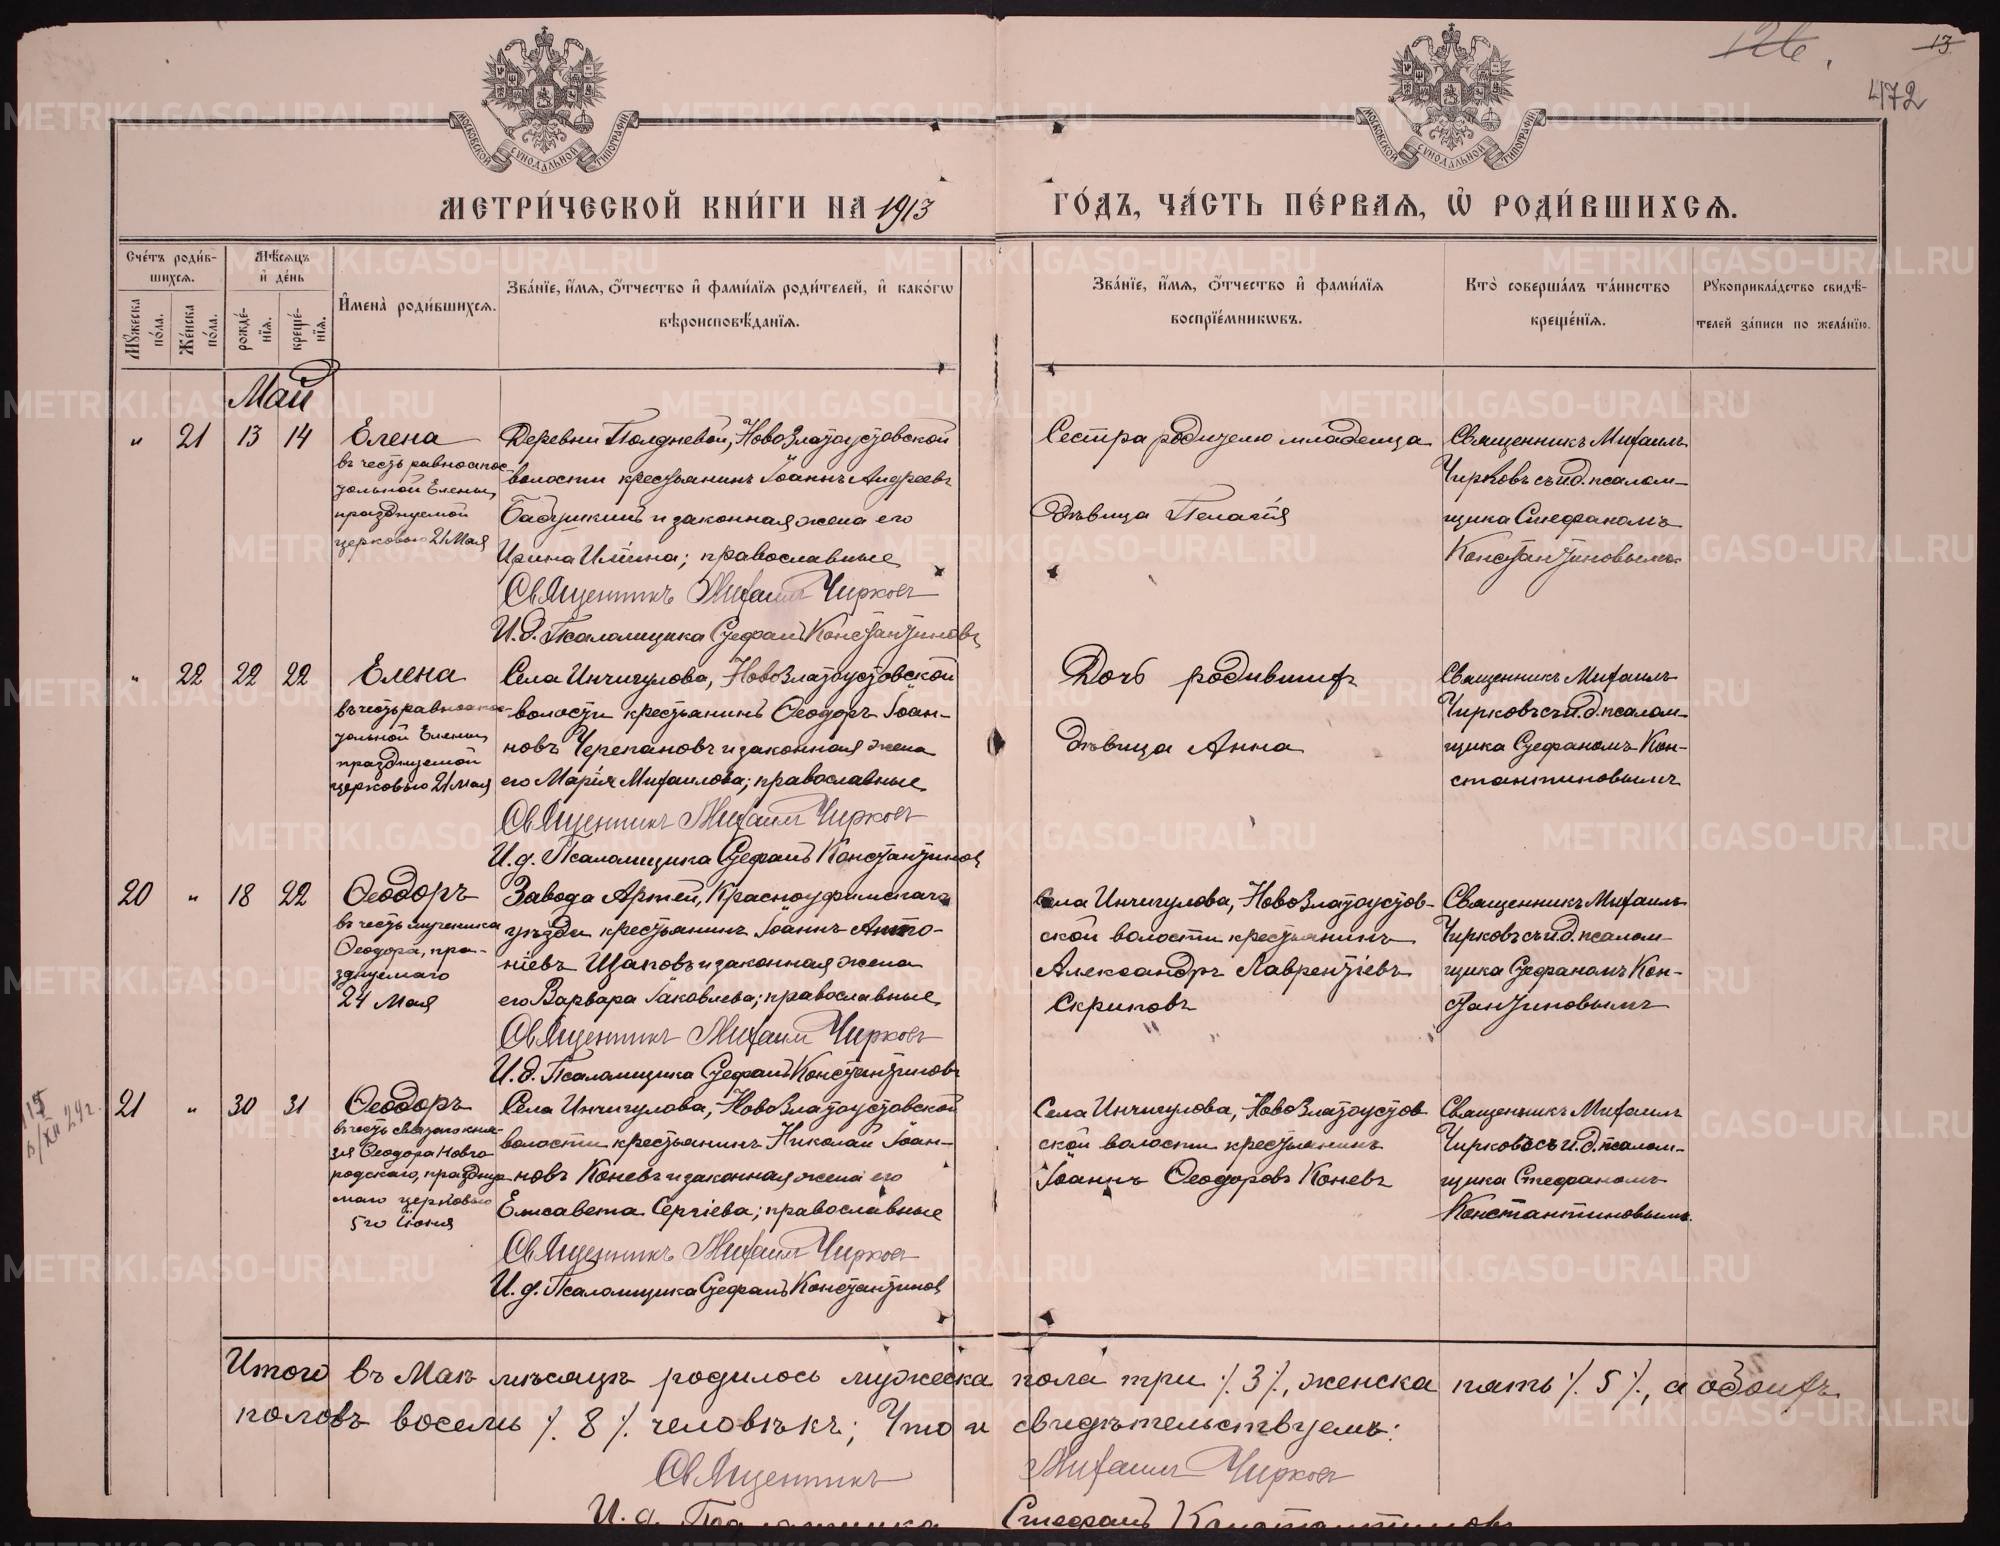 126.
13
472
МОСКОВСКОЙ СѴНОДАЛЬНОЙ ТИПОГРАФІИ
МОСКОВСКОЙ СѴНОДАЛЬНОЙ ТИПОГРАФІИ
МЕТРИ́ЧЕСКОЙ КНИ́ГИ НА 1913 ГО́ДЪ, ЧА́СТЬ ПЕ́РВАЯ, Ѡ҆ РОДИ́ВШИХСЯ.
Сче́тъ роди́в-
шихся.
Мѣ́сяцъ
и҆ де́нь
Мꙋ́жеска
по́ла.
Же́нска
по́ла.
рожде́-
нїя.
креще́-
нїя.
И҆мена̀ роди́вшихся.
Зва́нїе, и҆́мя, ѻ҆́тчество и҆ фами́лїя роди́телей, и҆ како́гѡ
вѣроисповѣ́данїя.
Зва́нїе, и҆́мя, ѻ҆́тчество и҆ фами́лїя
воспрїе́мникѡвъ.
Кто̀ соверша́лъ та́инство
креще́нїя.
Рꙋкоприкла́дство свидѣ́-
телей за́писи по жела́нїю.
Май
" 21 13 14 Елена
въ честь равноапос-
тольной Елены,
празднуемой
церковью 21 Мая
Деревни Полдневой, Ново Златоустовской
волости крестьянинъ Іоаннъ Андреевъ
Бабушкинъ и законная жена его
Ирина Ильина; православные
Священникъ Михаилъ Чирковъ
И. д. Псаломщика Стефанъ Константиновъ
Сестра родителю младенца
Дѣвица Пелагія
Священникъ Михаилъ
Чирковъ съ и.д. псалом-
щика Стефаномъ
Константиновымъ
" 22 22 22 Елена
въ честь равноапос-
тольной Елены,
празднуемой
церковью 21 мая
Села Инчигулова, Ново Златоустовской
волости крестьянинъ Ѳеодоръ Іоан-
новъ Черепановъ и законная жена
его Марія Михаилова; православные
Священникъ Михаилъ Чирковъ
И. д. Псаломщика Стефанъ Константинов
Дочь родившихъ
дѣвица Анна
Священникъ Михаилъ
Чирковъ съ и. д. псалом-
щика Стефаномъ Кон-
стантиновымъ
20 " 18 22 Ѳеодоръ
въ честь мученика
Ѳеодора, пра-
зднуемаго
24 Мая
Завода Артей, Красноуфимскаго
уѣзда крестьянинъ Іоаннъ Анто-
ніевъ Щаповъ и законная жена
его Варвара Іаковлева; православные
Священникъ Михаилъ Чирковъ
И. д. Псаломщика Стефанъ Константиновъ
села Инчигулова, Ново Златоустов-
ской волости крестьянинъ
Александръ Лаврентіевъ
Скриповъ
Священникъ Михаилъ
Чирковъ съ и.д. псалом-
щика Стефаномъ Кон-
стантиновымъ
21 " 30 31 Ѳеодоръ
въ честь святаго кня-
зя Ѳеодора Новго-
родскаго, празднуе
маго церковью
5го Іюня
Села Инчигулова, Ново Златоустовской
волости крестьянинъ Николай Іоан-
новъ Коневъ и законная жена его
Елисавета Сергіева; православные
Священникъ Михаилъ Чирковъ
И. д. Псаломщика Стефанъ Константинов
Села Инчигулова, Ново Златоустов
ской волости крестьянинъ
Іоаннъ Ѳеодоровъ Коневъ
Священникъ Михаилъ
Чирковъ съ и. д. псалом-
щика Стефаномъ
Константиновымъ.
Итого въ Маѣ мѣсяцѣ родилось мужеска пола три ·/. 3 ·/., женска пять ·/. 5 ·/., а обоихъ
половъ восемь ·/. 8 ·/. человѣкъ; Что и свидѣтельствуемъ:
Священникъ Михаилъ Чирковъ
И. д. Псаломщика Стефанъ Константиновъ
METRIKI.GASO-URAL.RU